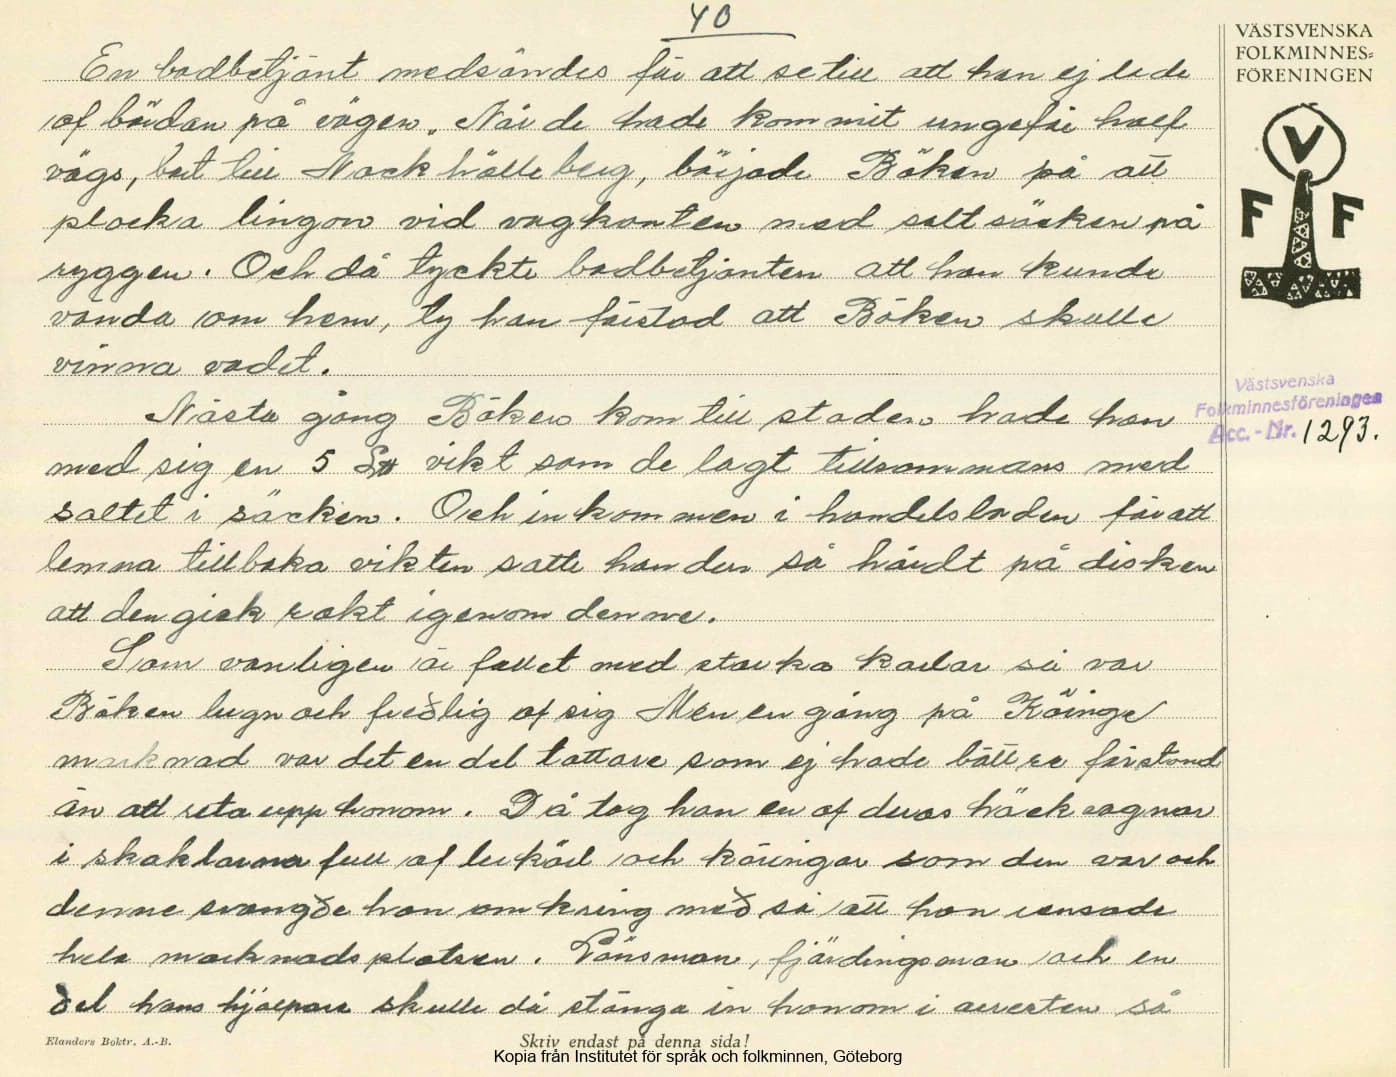 40
VÄSTSVENSKA
FOLKMINNES-
FÖRENINGEN
V
F F
Västsvenska
Folkminnesföreningen
Acc. - Nr. 1293.
En bodbetjänt medsändes för att se till att han ej lade
af bördan på vägen. När de hade kommit ungefär half
vägs, bort till Nackhälle berg, började Böken på att
plocka lingon vid vägkanten med saltsäcken på
ryggen. Och då tyckte bodbetjänten att han kunde
vända om hem, ty han förstod att Böken skulle
vinna vadet.
Nästa gång Böken kom till staden hade han
med sig en 5 L℔ vikt som de lagt tillsammans med
saltet i säcken. Och inkommen i handelsboden för att
lemna tillbaka vikten satte han den så hårdt på disken
att den gick rakt igenom denne.
Som vanligen är fallet med starka karlar så var
Böken lugn och fredlig af sig Men en gång på Köinge
marknad var det en del tattare som ej hade bättre förstånd
än att reta upp honom. Då tog han en af deras häckvagnar
i skaklarna full af lerkärl och käringar som den var och
denne svängde han omkring med så att han rensade
hela marknadsplatsen. Länsman, fjärdingsman och en
del hans hjälpare skulle då stänga in honom i arresten så
Elanders Boktr. A.-B.
Skriv endast på denna sida!
Kopia från Institutet för språk och folkminnen, Göteborg